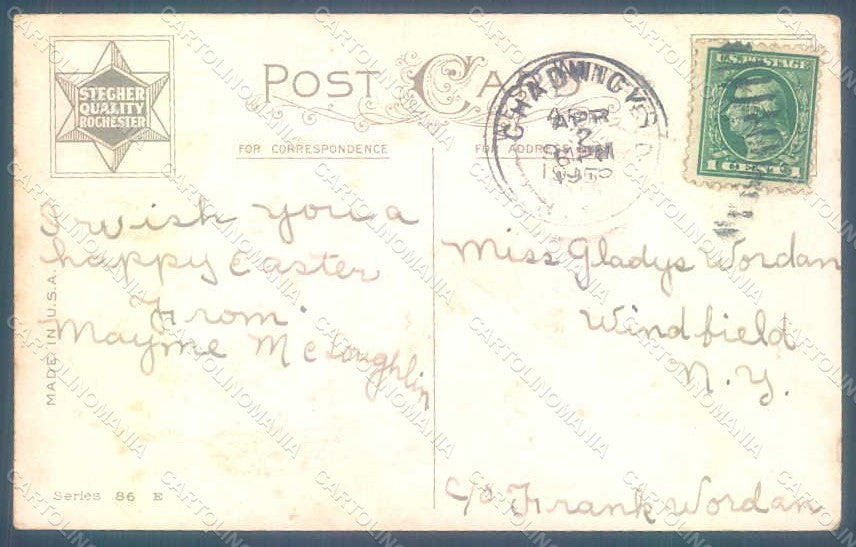 STECHER
QUALITY
ROCHESTER
POST CARD
FOR CORRESPONDENCE
FOR ADDRESS
APR
2
6 PM
U.S. POSTAGE
1 CENT
I wish you a
happy Easter
From.
Mayme McLoughlin
MADE IN U.S.A.
Series 86 E
Miss Gladys Wordan
Windfield
N.Y.
c/o Frank Wordan
CARTOLINOMANIA